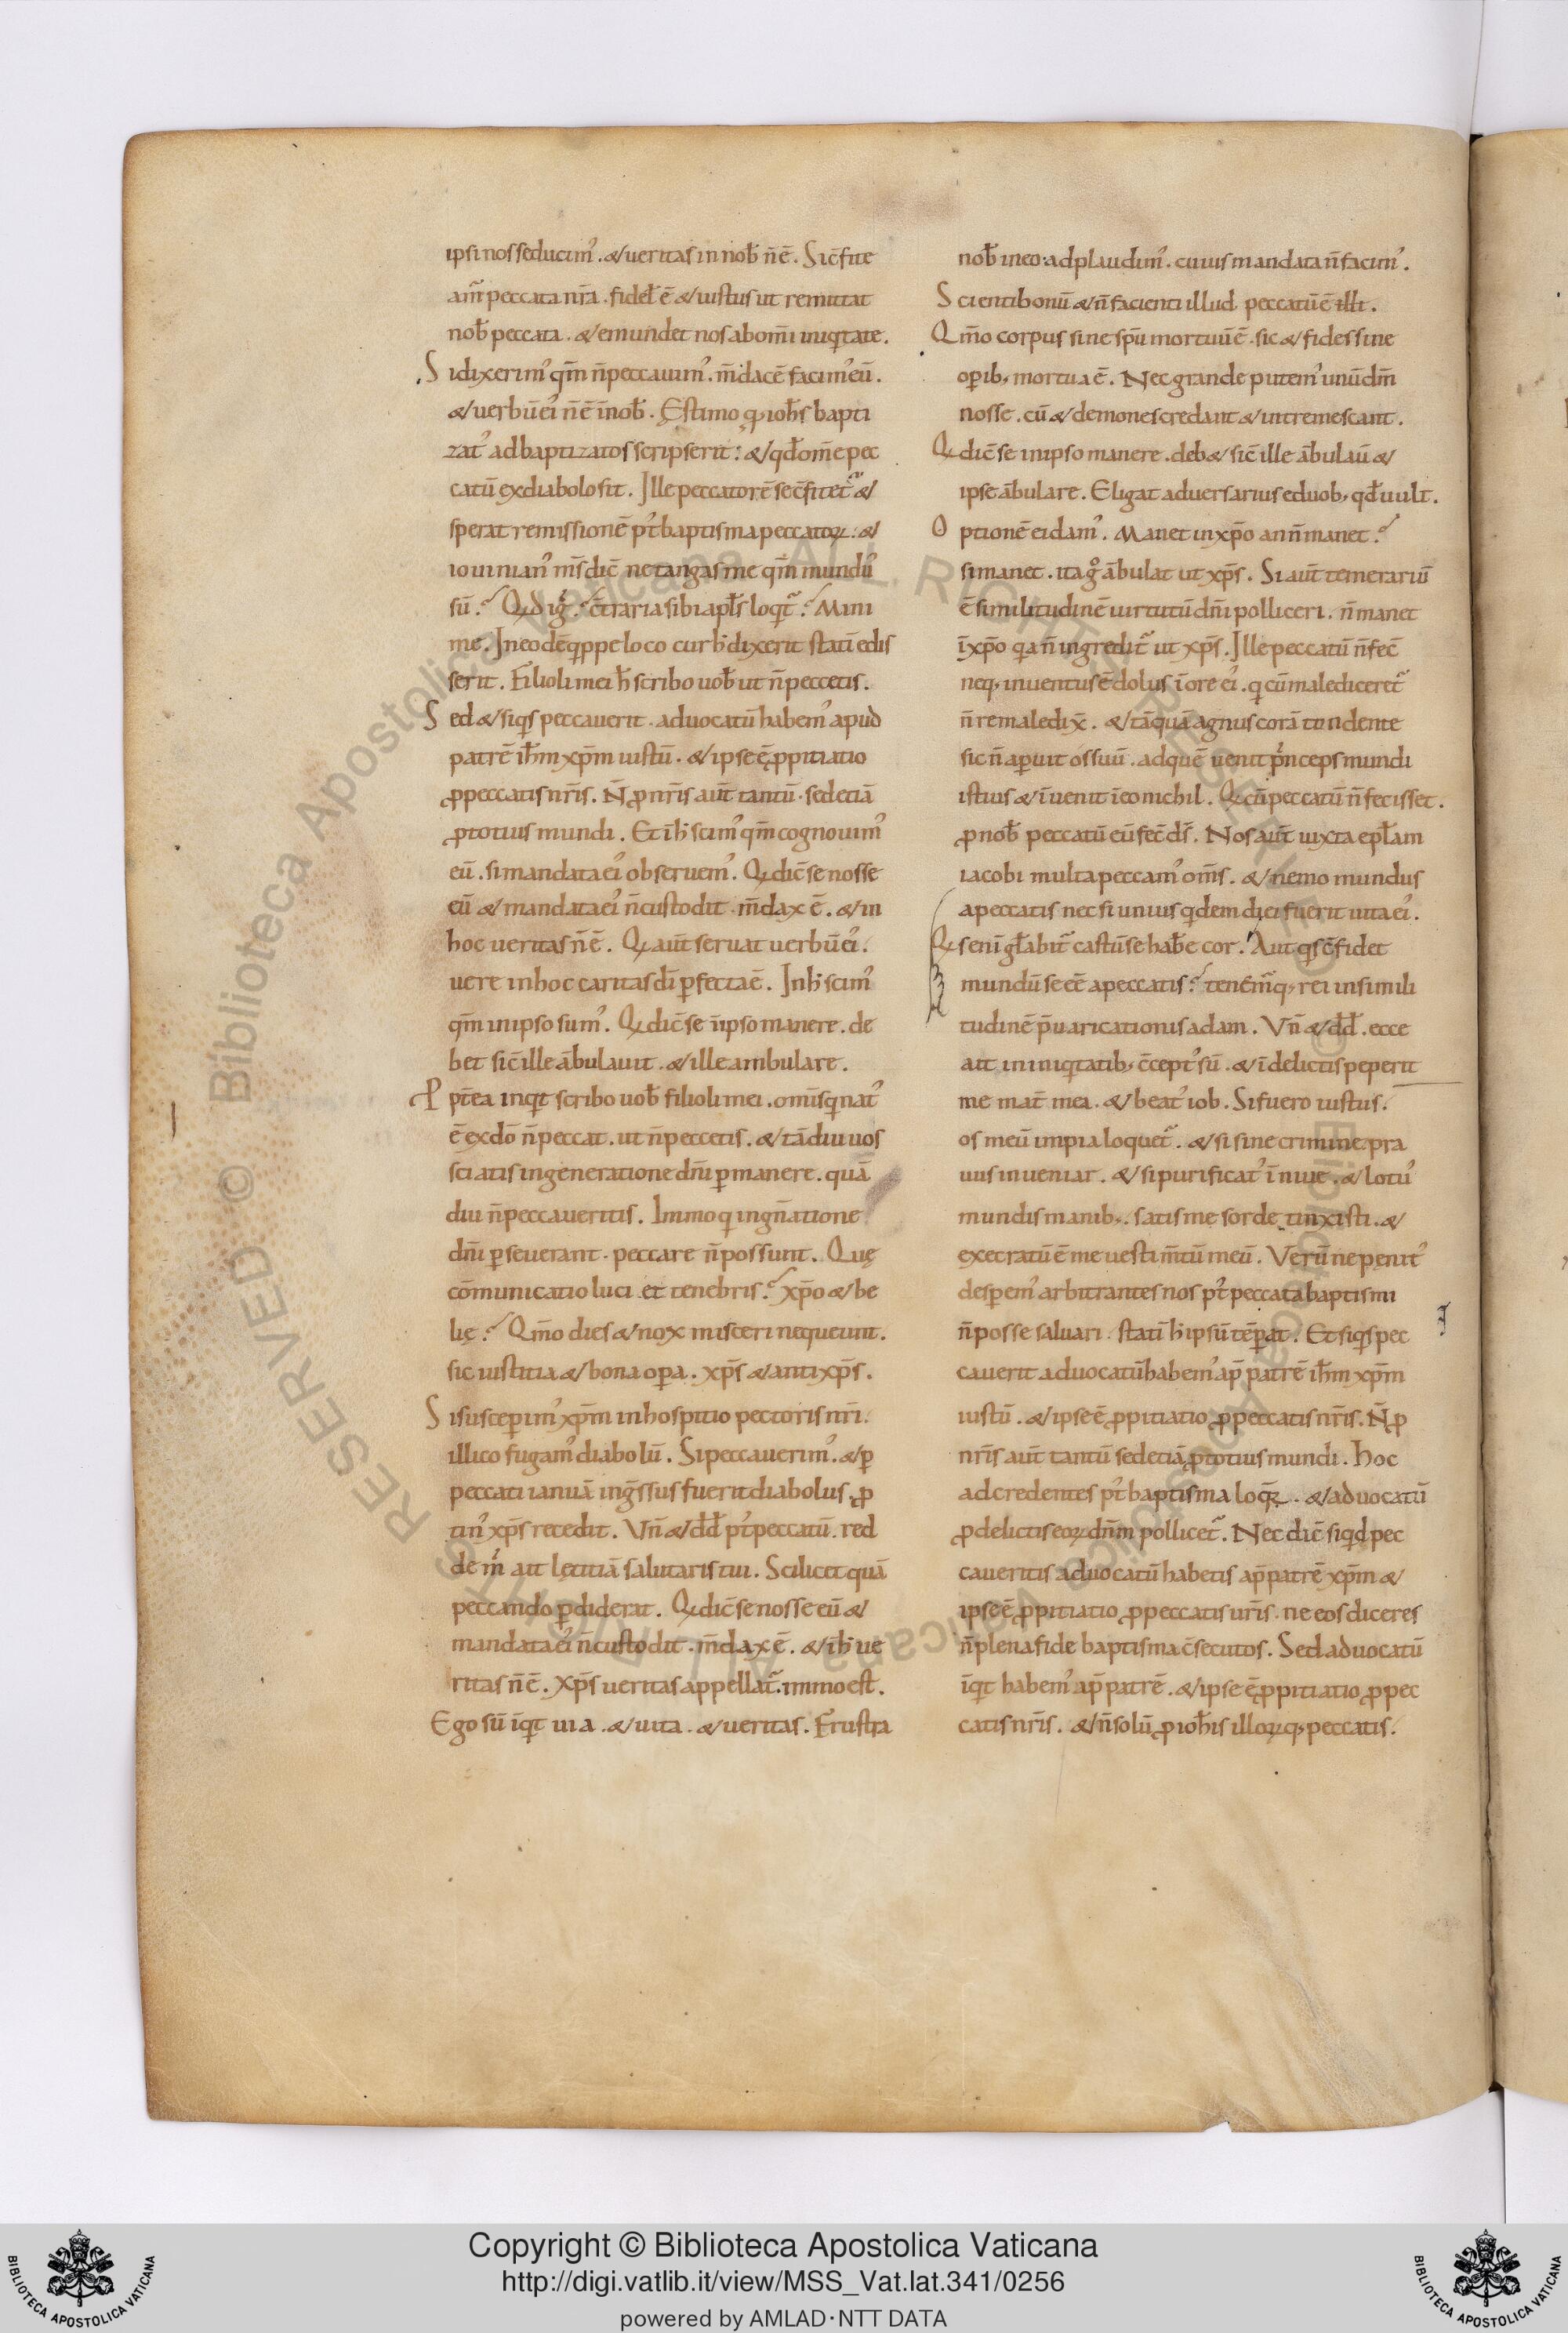 ipsi nos seducim᾽. & ueritas in nob̄ n̄ ē. Si c̄fite
am̄ peccata nr̄a. fidel̄ ē & iustus ut remittat
nob̄ peccata. & emundet nos ab om̄i iniq̄tate.
Si dixerim᾽ qm̄ n̄ peccauim᾽. m̄dacē facim᾽ eū.
& uerbū ei᾽ n̄ ē ī nob̄. Ęstimo q̄ ioh̄s bapti
zat᾽ ad baptizatos scripserit: & qd̄ om̄e pec
catū ex diabolo sit. Ille peccatorē se c̄fitet᷑ &
sperat remissionē pt᾽ baptisma peccatoꝝ: &
iouinian᾽ m̄s dic̄ ne tangas me qm̄ mundu᾽
sū. Qd igͥ? c̄traria sibi apl̄s loq̄t᷑? Mini
me. In eodē q̄ppe loco cur h̄ dixerit statī edis
serit. Filioli mei h̄ scribo uob̄ ut n̄ peccetis.
Sed & siq̄s peccauerit. aduocatū habem᾽ apud
patrē ih̄m xp̄m iustū. & ipse ē ꝓpitiatio
ꝓ peccatis nr̄is. N̄ ꝓ nr̄is aut̄ tantū. sed etiā
ꝓ totius mundi. Et ī h̄ scim᾽ qm̄ cognouim᾽
eū. si mandata ei᾽ obseruem᾽. Qui dic̄ se nosse
eū & mandata ei᾽ n̄ custodit. m̄dax ē. & in
hoc ueritas n̄ ē. Qui aut̄ seruat uerbū ei᾽.
uere in hoc caritas dī ꝑfecta ē. In h̄ scim᾽
qm̄ in ipso sum᾽. Qui dic̄ se īipso manere. de
bet sic̄ ille ābulauit. & ille ambulare.
Ppt̄ea inq̄t scribo uob̄ filioli mei. om̄is q̄ nat᾽
ē ex dō n̄ peccat. ut n̄ peccetis. & tādiu uos
sciatis in generatione dn̄i ꝑmanere. quā
diu n̄ peccaueritis. Immo q̄ in gn̄atione
dn̄i ꝑseuerant. peccare n̄ possunt. Quę
cōmunicatio luci et tenebris? xp̄o & be
lię? Qm̄o dies & nox misceri nequeunt.
sic iustitia & bona oꝑa. xp̄s & antixp̄s.
Si susceꝑim᾽ xp̄m in hospitio pectoris nr̄i.
illico fugam᾽ diabolū. Si peccauerim᾽. & ꝑ
peccati ianuā ingr̄ssus fuerit diabolus. ꝓ
tin᾽ xp̄s recedit. Vn̄ & dd̄ pt᾽ peccatū. red
de mͥ ait lętitiā salutaris tui. Scilicet quā
peccando ꝑdiderat. Qui dic̄ se nosse eū &
mandata ei᾽ n̄ custodit. m̄dax ē. & ī h̄ ue
ritas n̄ ē. Xp̄s ueritas appellat᷑. immo est.
Ego sū īq̄t uia. & uita. & ueritas. Frustra
nob̄ in eo adplaudim᾽. cuius mandata n̄ facim᾽.
Scienti bonū & n̄ facienti illud peccatū ē illi.
Qm̄o corpus sine sp̄u mortuū ē. sic & fides sine
oꝑib; mortua ē. Nec grande putem᾽ unū dm̄
nosse. cū & demones credant & intremescant.
Qui dic̄ se in ipso manere. deb& sic̄ ille ābulau̅ &
ipse ābulare. Eligat aduersarius e duob; qd̄ uult.
Optionē ei dam᾽. Manet in xp̄o an n̄ manet?
si manet. ita gͦ ābulat ut xp̄s. Si aut̄ temerariū
ē similitudinē uirtutū dn̄i polliceri. n̄ manet
ī xp̄o q̄a n̄ ingredit᷑ ut xp̄s. Ille peccatū n̄ fec̄
neq; inuentus ē dolus ī ore ei᾽. q̄ cū malediceret᷑
n̄ remaledix̄. & tāquā agnus corā tondente
sic n̄ aꝑuit os suū. ad quē uenit pͥnceps mundi
istius & īuenit ī eo nichil. Qui cū peccatū n̄ fecisset.
ꝓ nob̄ peccatū eū fec̄ ds̄. Nos aut̄ iuxta epl̄am
iacobi multa peccam᾽ om̄s. & nemo mundus
a peccatis nec si unius q̄dem diei fuerit uita ei᾽.
Quis eni gl̄abit᷑ castū se hab̄e cor. Aut q̄s c̄fidet
mundū se eē a peccatis? tenem᷑q; rei in simili
tudinē p̄uaricationis adam. Vn̄ & dd̄. ecce
ait in iniq̄tatib; c̄cept᾽ sū. & ī delictis peperit
me mat̄ mea. & beat᾽ iob. Si fuero iustus.
os meū impia loquet᷑. & si sine crimine. pra
uus inueniar. & si purificat᾽ ī niue. & lotu᾽
mundis manib;. satis me sorde tinxisti. &
execratū ē me uestim̄tū meū. Verū ne penit᾽
desꝑem᾽ arbitrantes nos pt᾽ peccata baptismi
n̄ posse saluari. statī h̄ ipsū tēꝑat. Et siq̄s pec
cauerit aduocatū habem᾽ ap̄ patrē ih̄m xp̄m
iustū. & ipse ē ꝓpitiatio ꝓ peccatis nr̄is. N̄ ꝓ
nr̄is aut̄ tantū sed etiā ꝓ totius mundi. Hoc
ad credentes pt᾽ baptisma loq̄t᷑. & aduocatū
ꝓ delictis eoꝝ dn̄m pollicet᷑. Nec dic̄ siq̄d pec
caueritis aduocatū habetis ap̄ patrē xp̄m &
ipse ē ꝓpitiatio ꝓ peccatis ur̄is. ne eos diceres
n̄ plena fide baptisma c̄secutos. Sed aduocatū
īq̄t habem᾽ ap̄ patrē. & ipse ē ꝓpitiatio ꝓ pec
catis nr̄is. & n̄ solū ꝓ ioh̄is illoꝝq; peccatis.
Copyright © Biblioteca Apostolica Vaticana
http://digi.vatlib.it/view/MSS_Vat.lat.341/0256
powered by AMLAD·NTT DATA